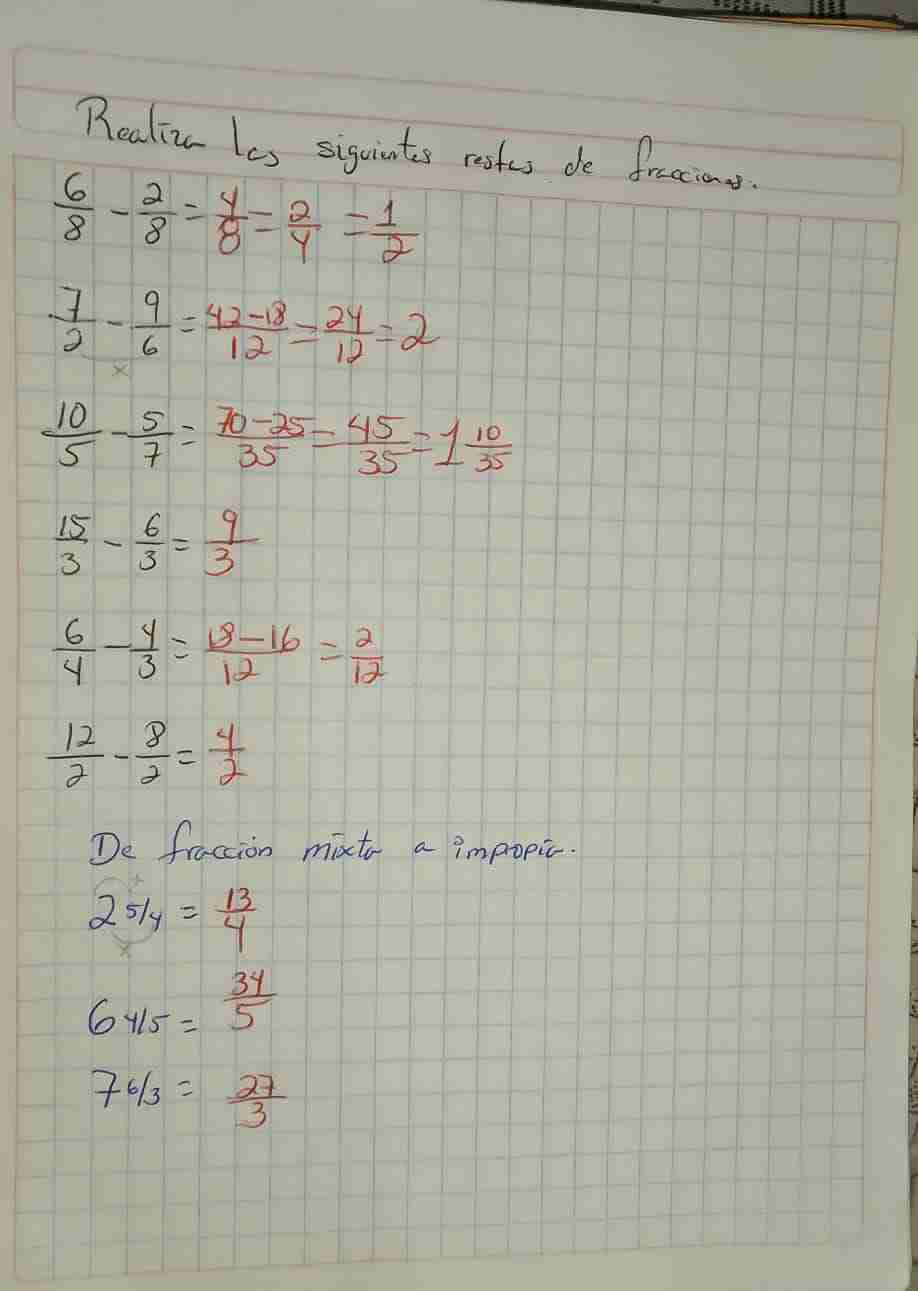 Realiza las siguientes restas de fracciones.
6/8 - 2/8 = 4/8 = 2/4 = 1/2
7/2 - 9/6 = 42-18/12 = 24/12 = 2
10/5 - 5/7 = 70-25/35 = 45/35 = 1 10/35
15/3 - 6/3 = 9/3
6/4 - 4/3 = 18-16/12 = 2/12
12/2 - 8/2 = 4/2
De fracción mixta a impropia.
2 5/4 = 13/4
6 4/5 = 34/5
7 6/3 = 27/3